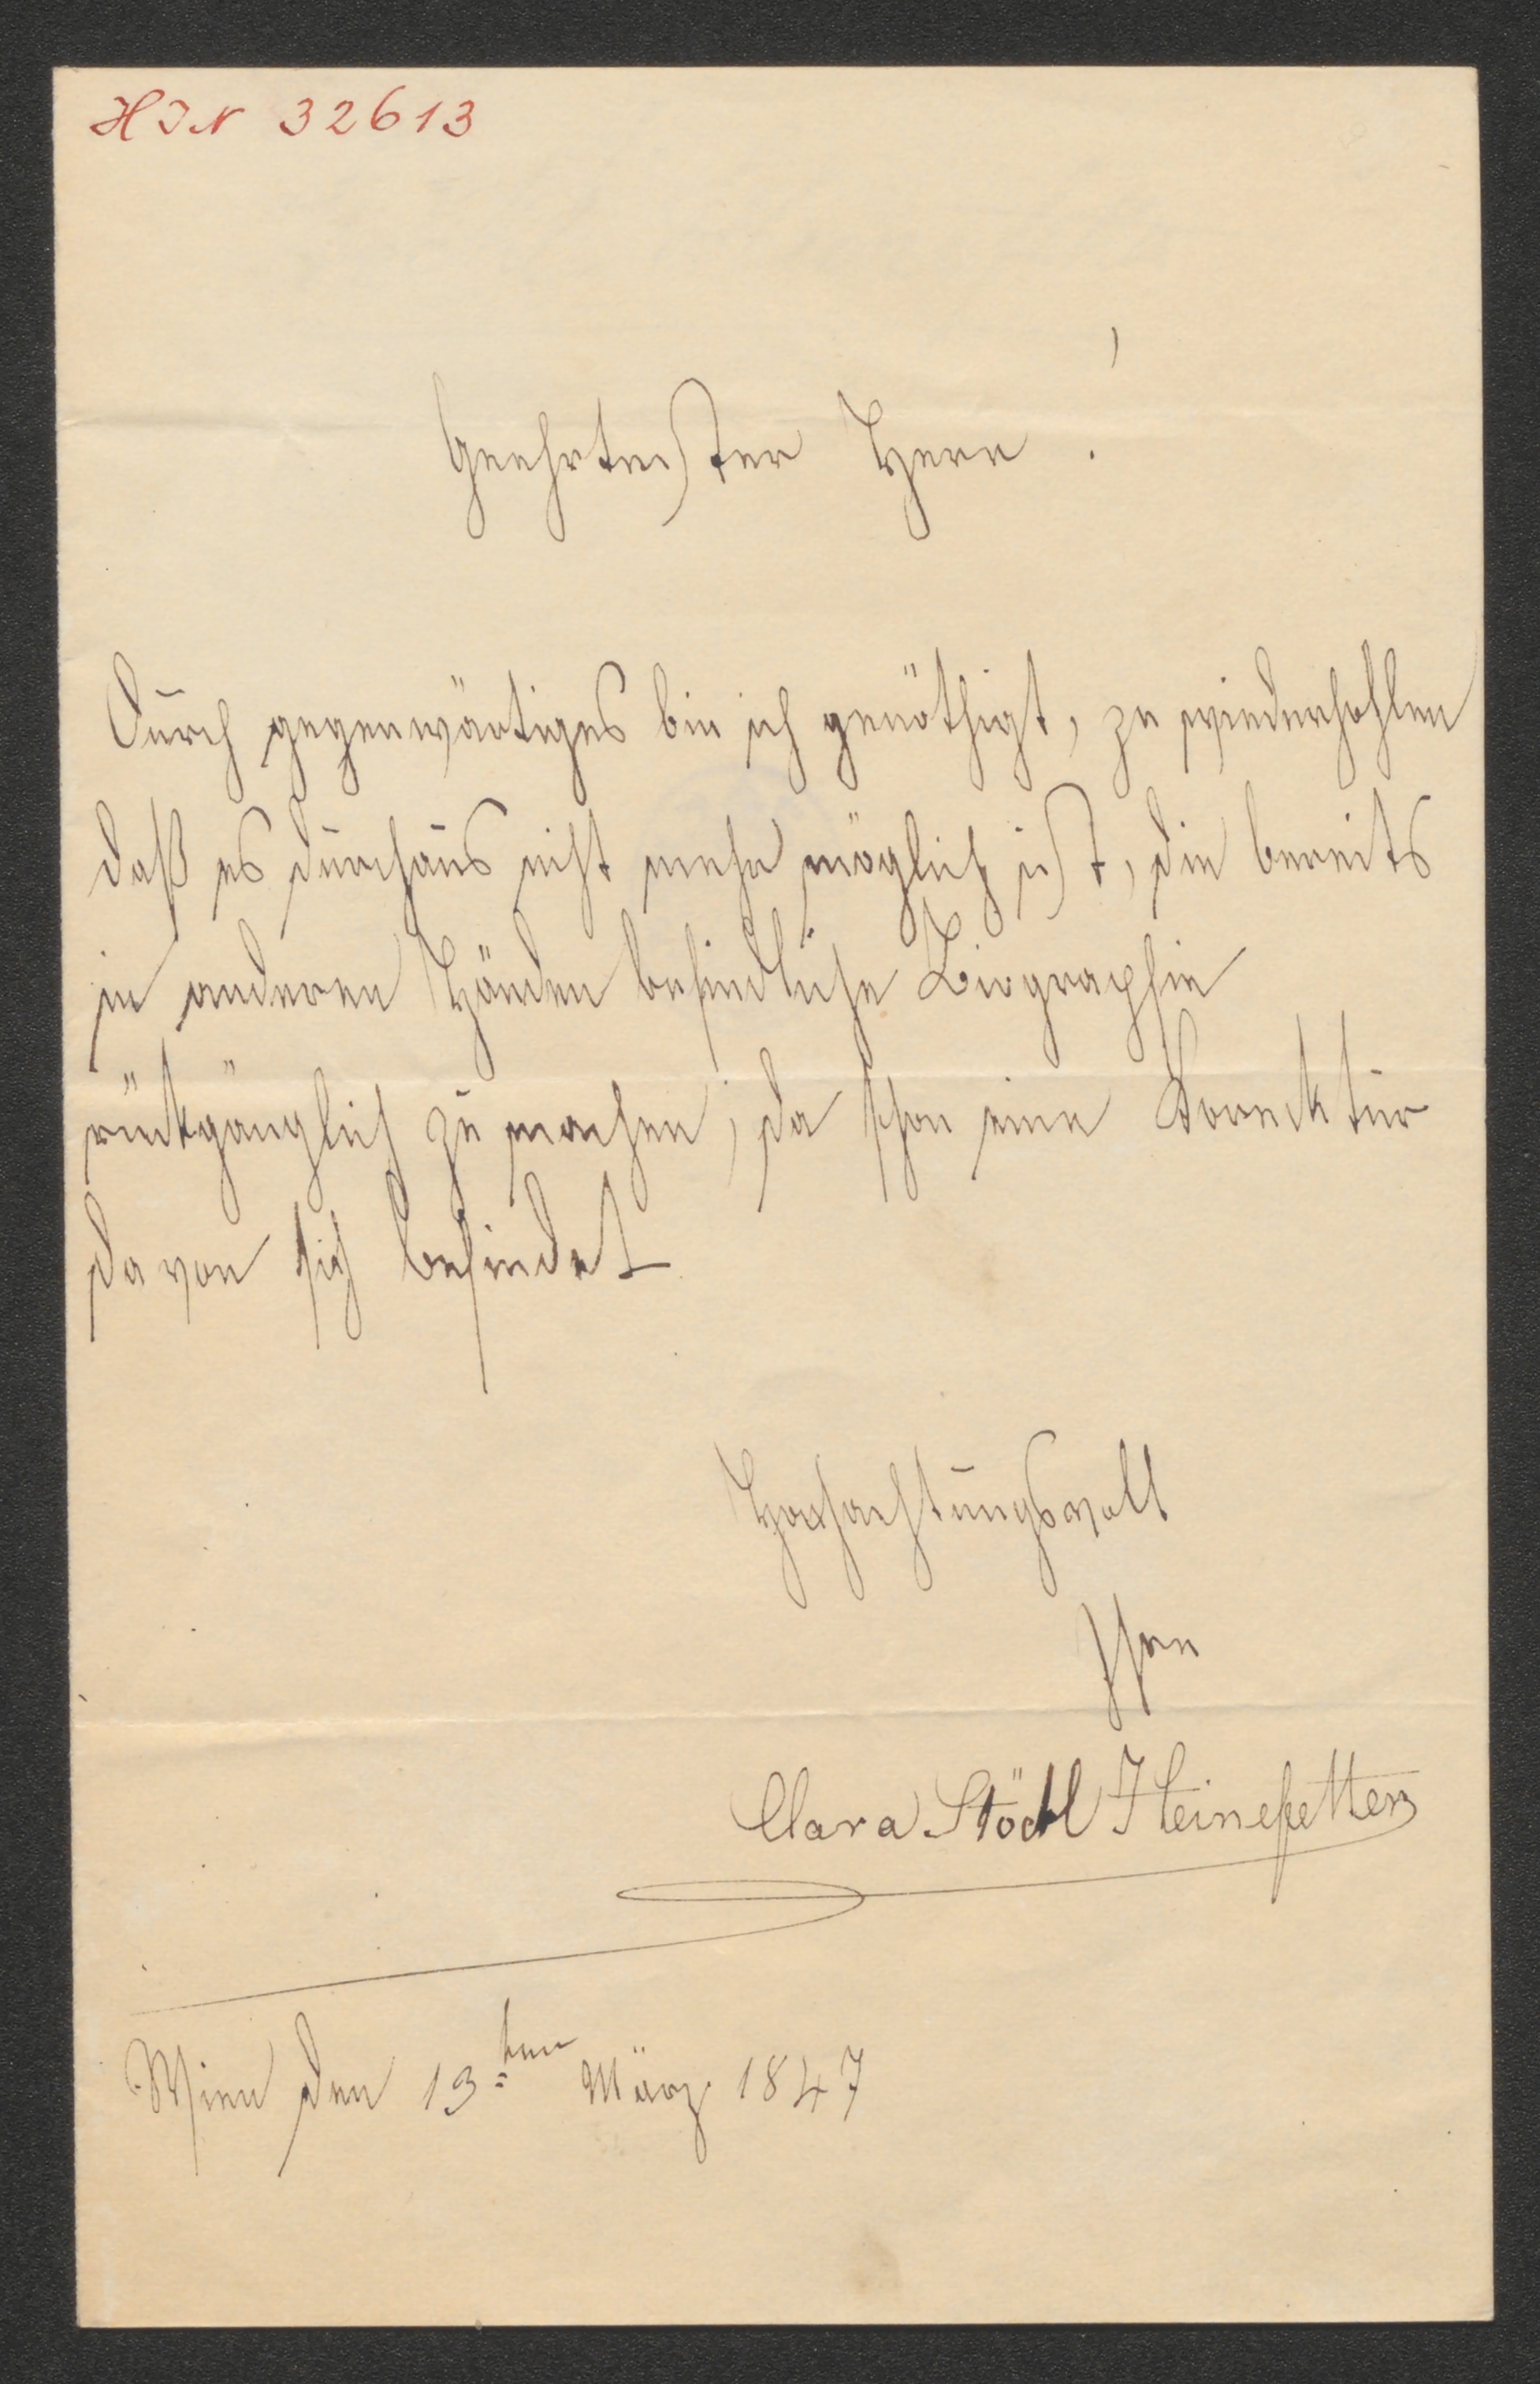 HIN 32613
Geehrtester Herr!
Durch gegenwärtiges bin ich genöthigt, zu wiederhohlen
daß es durchaus nicht mehr möglich ist, die bereits
in anderen Händen befindliche Biographie
rückgänglich zu machen, da schon eine Korecktur
davon sich befindet
Hochachtungsvoll
Ihre
Clara Stöckl Heinefetter
Wien den 13ten März 1847